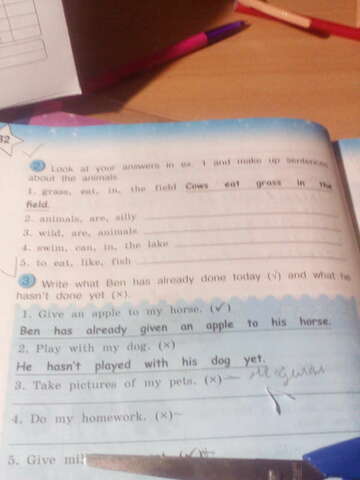 32
2 Look at your answers in ex. 1 and make up sentences
about the animals.
1. grass, eat, in, the field Cows eat grass in the
field.
2. animals, are, silly
3. wild, are, animals
4. swim, can, in, the lake
5. to eat, like, fish
3 Write what Ben has already done today (√) and what he
hasn't done yet (×).
1. Give an apple to my horse. (✓)
Ben has already given an apple to his horse.
2. Play with my dog. (×)
He hasn't played with his dog yet.
3. Take pictures of my pets. (×)
4. Do my homework. (×)
5. Give